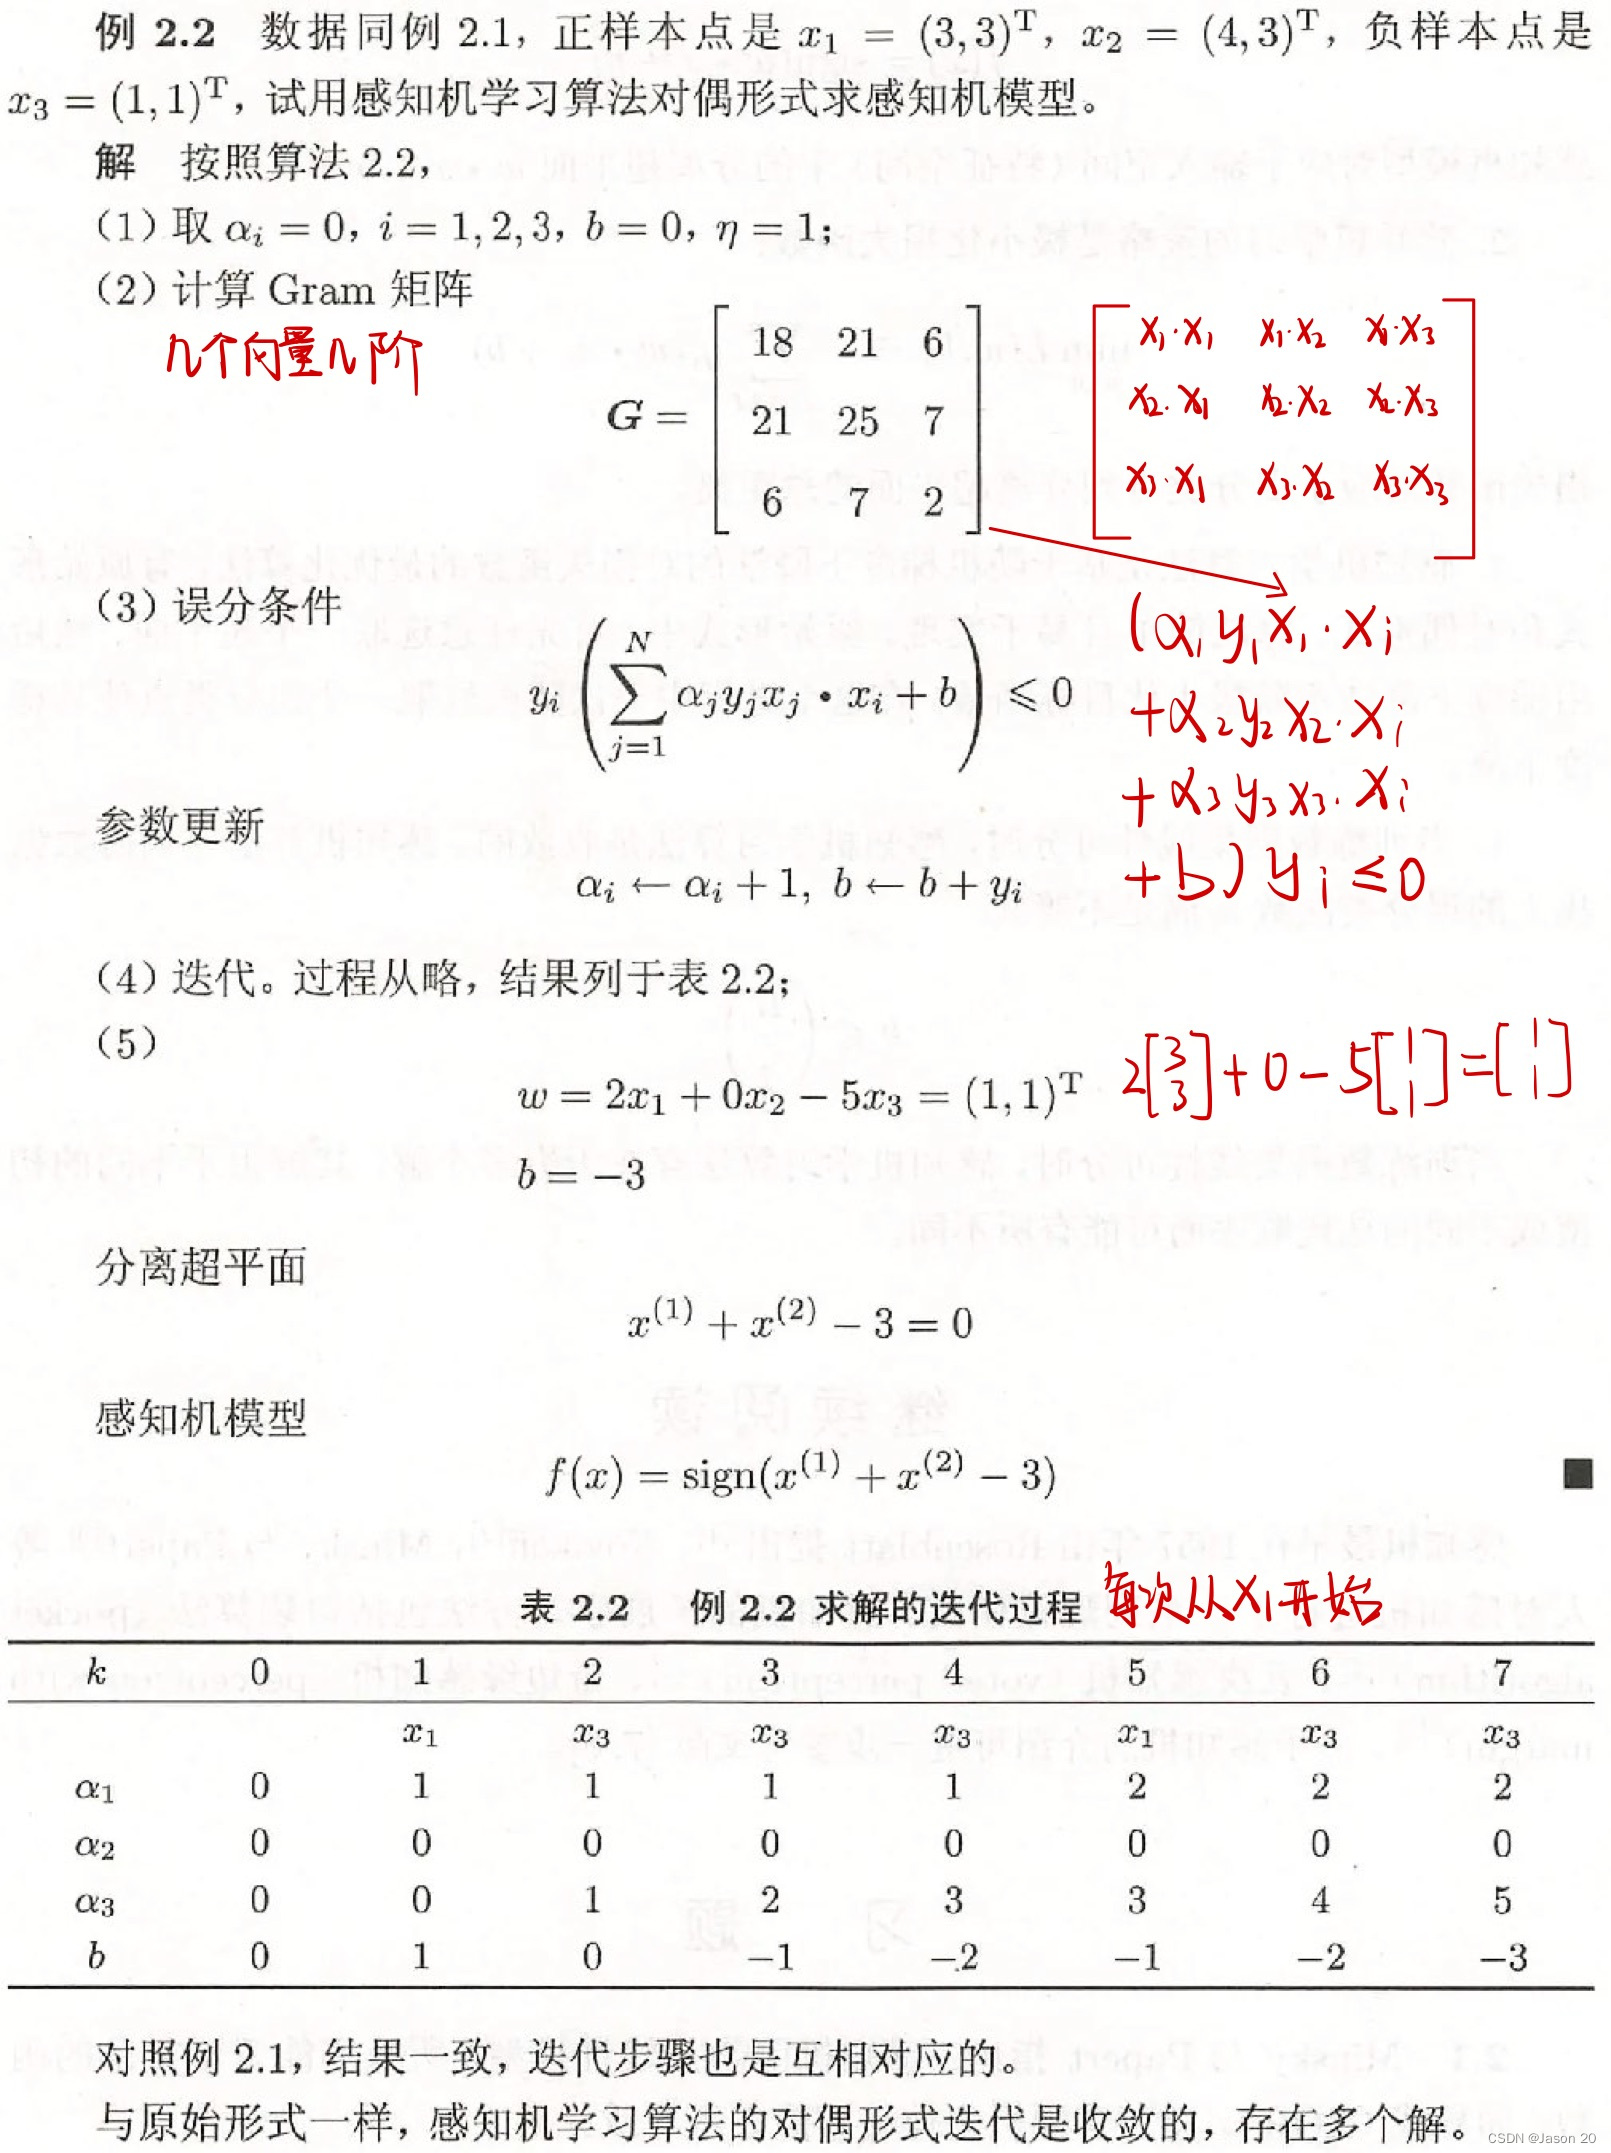 例 2.2 数据同例 2.1，正样本点是 x₁ = (3,3)ᵀ，x₂ = (4,3)ᵀ，负样本点是
x₃ = (1,1)ᵀ，试用感知机学习算法对偶形式求感知机模型。
解 按照算法 2.2，
（1）取 αᵢ = 0，i = 1,2,3，b = 0，η = 1；
（2）计算 Gram 矩阵
几个向量几阶
G = [ 18 21 6
21 25 7
6 7 2 ]
[ x₁·x₁ x₁·x₂ x₁·x₃
x₂·x₁ x₂·x₂ x₂·x₃
x₃·x₁ x₃·x₂ x₃·x₃ ]
（3）误分条件
yᵢ ( ∑_{j=1}^{N} αⱼyⱼxⱼ • xᵢ + b ) ⩽ 0
(α₁y₁x₁·xᵢ
+α₂y₂x₂·xᵢ
+α₃y₃x₃·xᵢ
+b)yᵢ≤0
参数更新
αᵢ ← αᵢ + 1, b ← b + yᵢ
（4）迭代。过程从略，结果列于表 2.2；
（5）
w = 2x₁ + 0x₂ − 5x₃ = (1,1)ᵀ
2[3 3]+0−5[1 1]=[1 1]
b = −3
分离超平面
x⁽¹⁾ + x⁽²⁾ − 3 = 0
感知机模型
f(x) = sign(x⁽¹⁾ + x⁽²⁾ − 3) ■
表 2.2 例 2.2 求解的迭代过程
每次从x₁开始
k 0 1 2 3 4 5 6 7
x₁ x₃ x₃ x₃ x₁ x₃ x₃
α₁ 0 1 1 1 1 2 2 2
α₂ 0 0 0 0 0 0 0 0
α₃ 0 0 1 2 3 3 4 5
b 0 1 0 −1 −2 −1 −2 −3
对照例 2.1，结果一致，迭代步骤也是互相对应的。
与原始形式一样，感知机学习算法的对偶形式迭代是收敛的，存在多个解。
CSDN @Jason 20